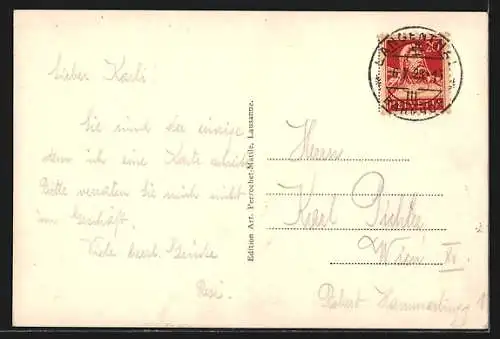 Lieber Karli!
Sie sind der einzige
dem ich eine Karte schreibe
Bitte verraten Sie mich nicht
im Geschäft.
Viele herzl. Grüsse
Resi.
Edition Art. Perrochet-Matile, Lausanne.
LANGENTHAL
HELVETIA
Herrn
Karl Pichler
Wien XV.
Robert Hamerling